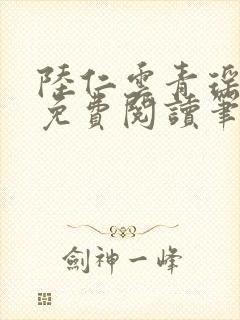 陸仁雲青瑶
免費閱讀筆
劍神一峰